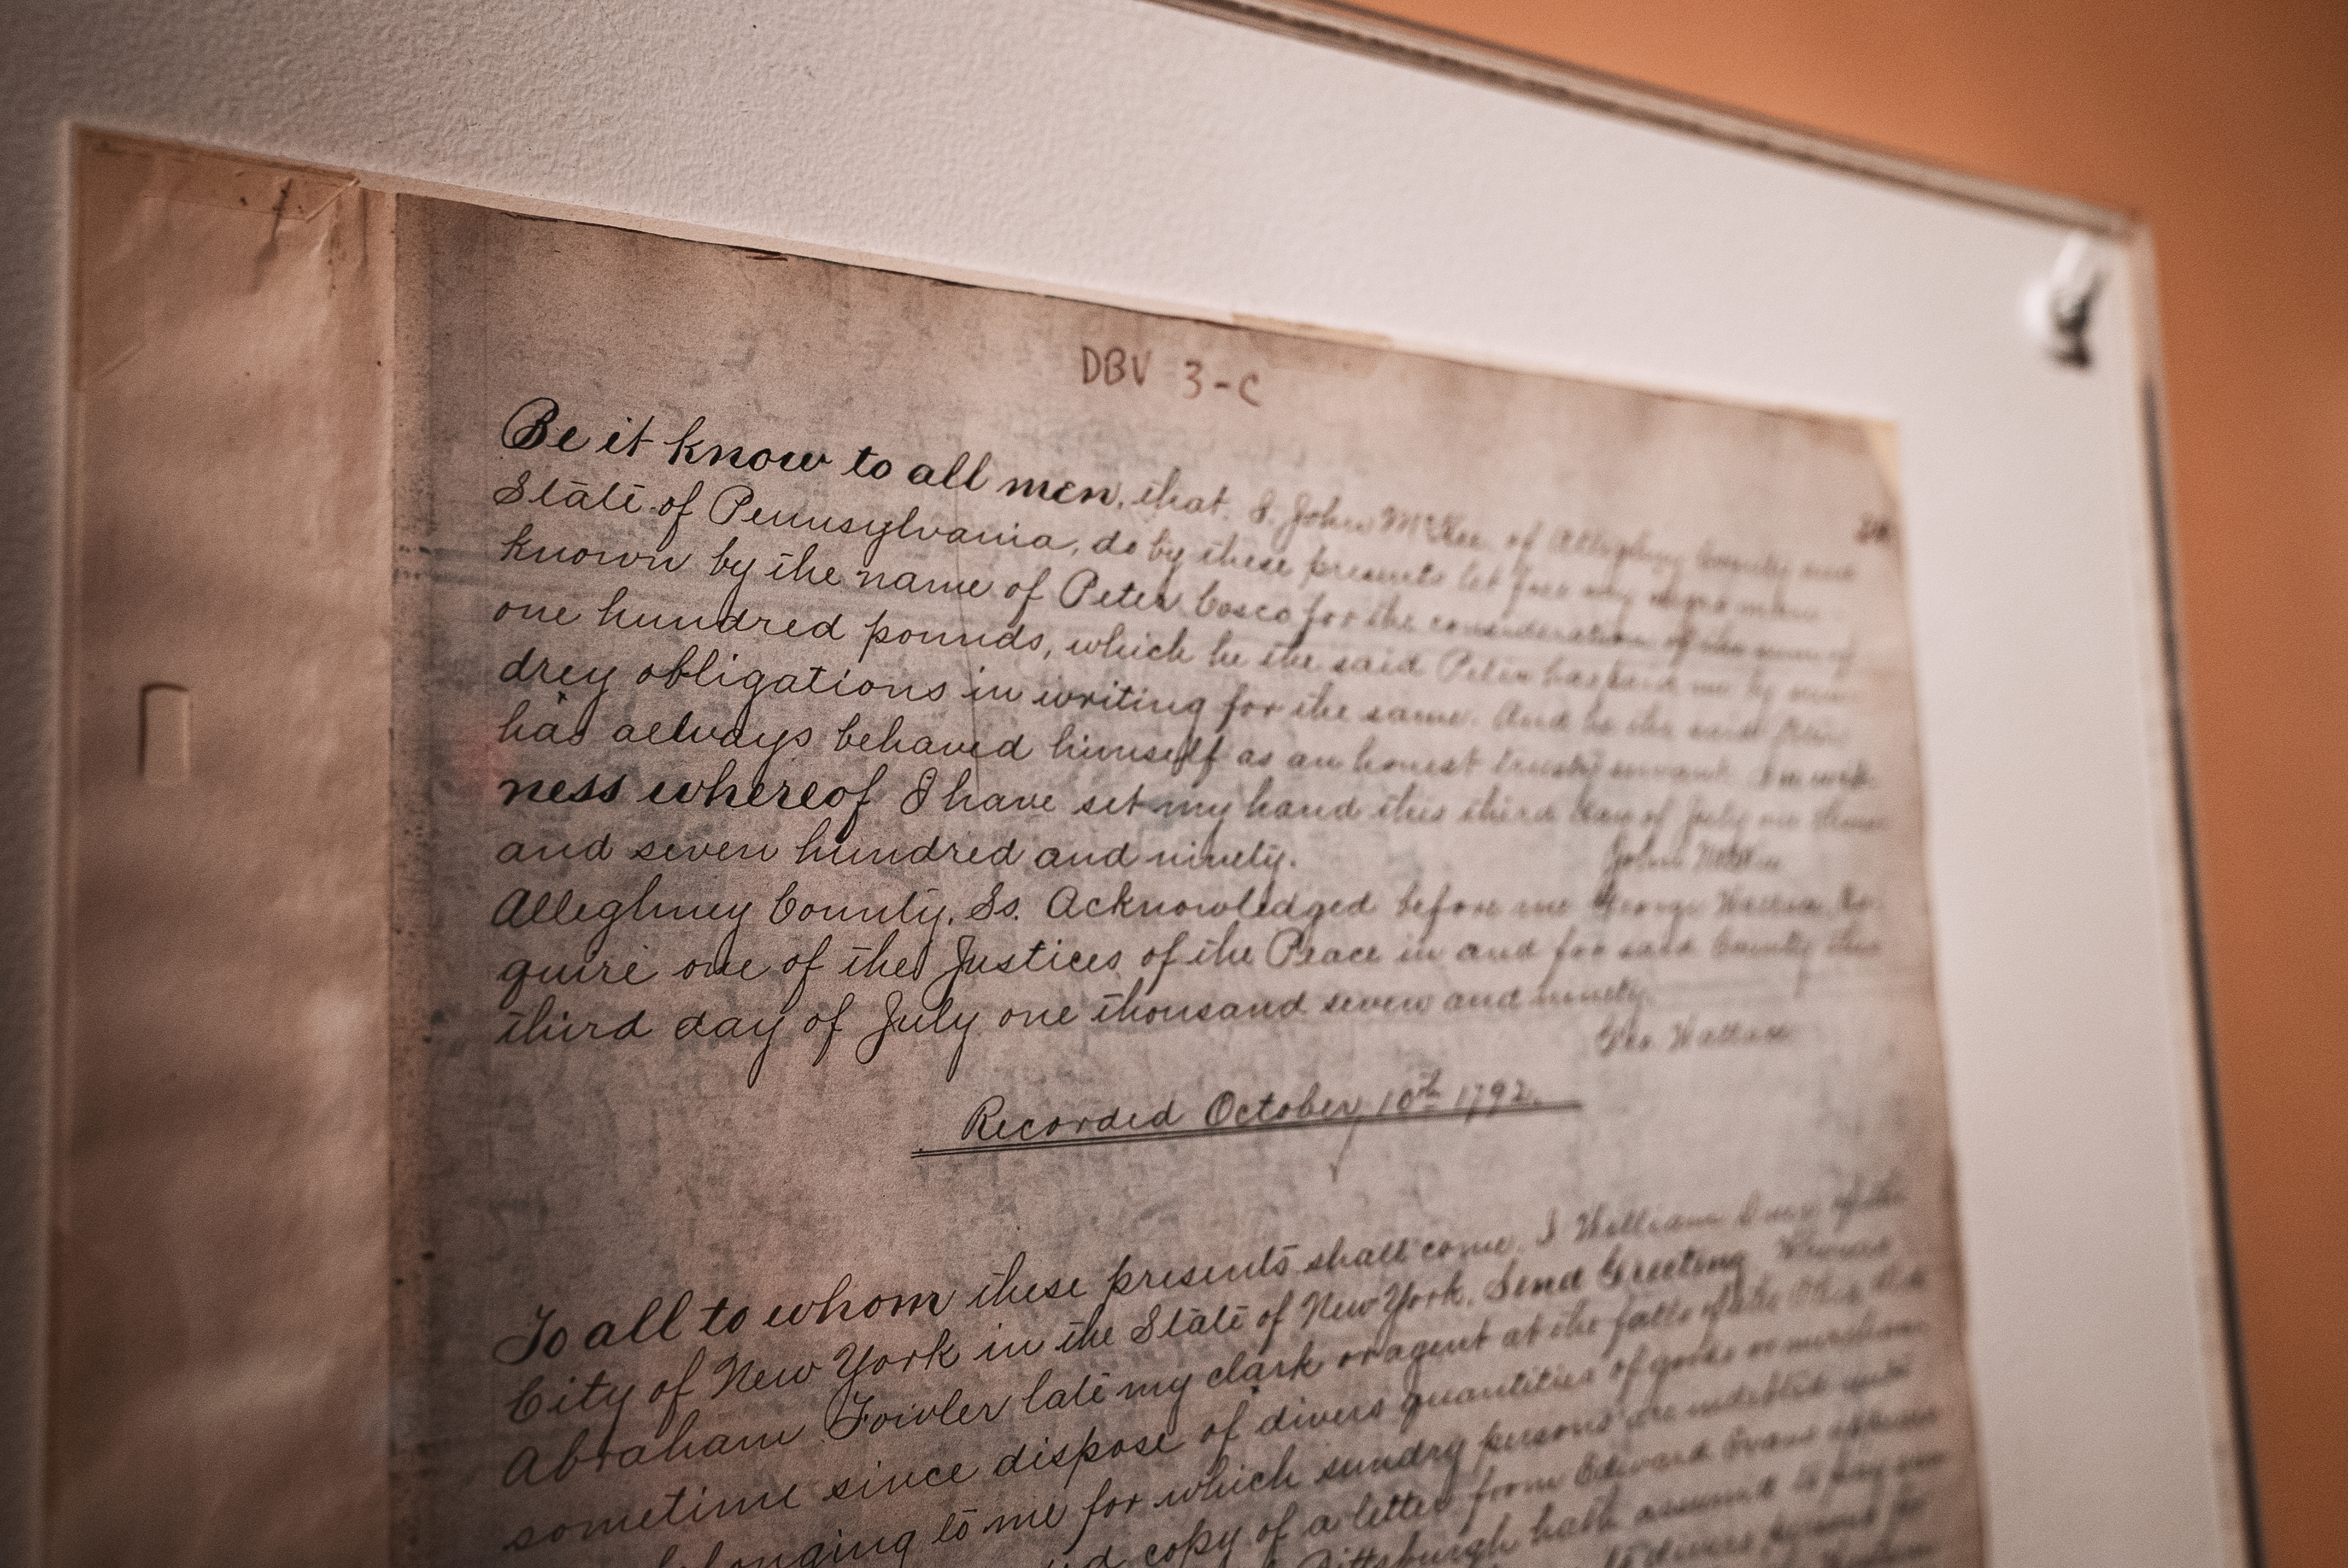 DBV 3-C
Be it know to all men, that I, John McKee, of Alleghny County and
State of Pennsylvania, do by these presents let free my negro man
known by the name of Peter Cosco for the consideration of the sum of
one hundred pounds, which he the said Peter has paid me by sun-
drey obligations in writing for the same. And he the said Peter
has aelways behaved himself as an honest trusty servant. In wit-
ness whereof I have set my hand this third day of July one thous
and seven hundred and ninety.
John McKee
Alleghney County, Ss. Acknowledged before me George Wallace, Es-
quire one of the Justices of the Peace in and for said County this
third day of July one thousand seven and ninety.
Geo. Wallace
Recorded October 10th 1792.
To all to whom these presents shall come, I William of the
City of New York in the State of New York, Send Greeting
Abraham Fowler late my clark or agent at the falls of the Ohio did
sometime since dispose of divers quantities of goods or merchan
longing to me for which sundry persons are indebted unto
copy of a letter from Edward Evans
Pittsburgh hath assumed to pay
to divers persons for